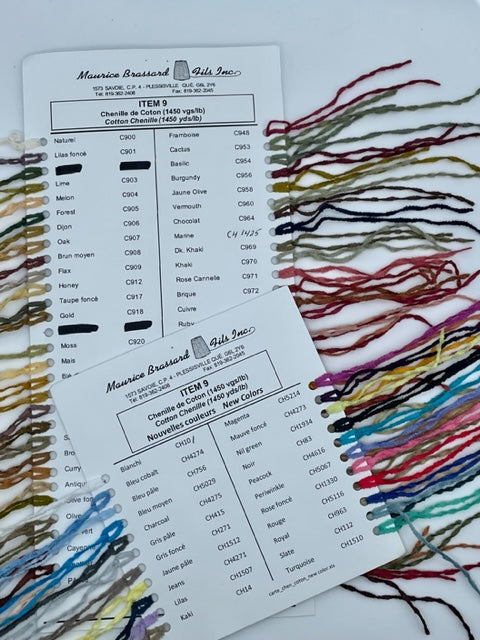 Maurice Brassard & Fils Inc.
1573 SAVOIE, C.P. 4 - PLESSISVILLE QUÉ, G6L 2Y6
Tél: 819-362-2408 Fax: 819-362-2045
ITEM 9
Chenille de Coton (1450 vgs/lb)
Cotton Chenille (1450 yds/lb)
Naturel C900
Lilas foncé C901
Lime C903
Melon C904
Forest C905
Dijon C906
Oak C907
Brun moyen C908
Flax C909
Honey C912
Taupe foncé C917
Gold C918
Moss C920
Mais
Curry
Cayenne
Framboise C948
Cactus C953
Basilic C954
Burgundy C956
Jaune Olive C958
Vermouth C960
Chocolat C964
Marine CH 1425
Dk. Khaki C969
Khaki C970
Rose Cannelle C971
Brique C972
Cuivre
Ruby
Maurice Brassard & Fils Inc.
1573 SAVOIE, C.P. 4 - PLESSISVILLE QUÉ, G6L 2Y6
Tél: 819-362-2408 Fax: 819-362-2045
ITEM 9
Chenille de Coton (1450 vgs/lb)
Cotton Chenille (1450 yds/lb)
Nouvelles couleurs New Colors
Blanchi
Bleu cobalt CH4274
Bleu pâle CH756
Bleu moyen CH5029
Charcoal CH4275
Gris pâle CH415
Gris foncé CH271
Jaune pâle CH1512
Jeans CH4271
Lilas CH1507
Kaki CH14
Magenta CH5214
Mauve foncé CH4273
Nil green CH1934
Noir CH83
Peacock CH4616
Periwinkle CH5067
Rose foncé CH1330
Rouge CH5116
Royal CH963
Slate CH112
Turquoise CH1510
carte_chen_cotton_new color.xls